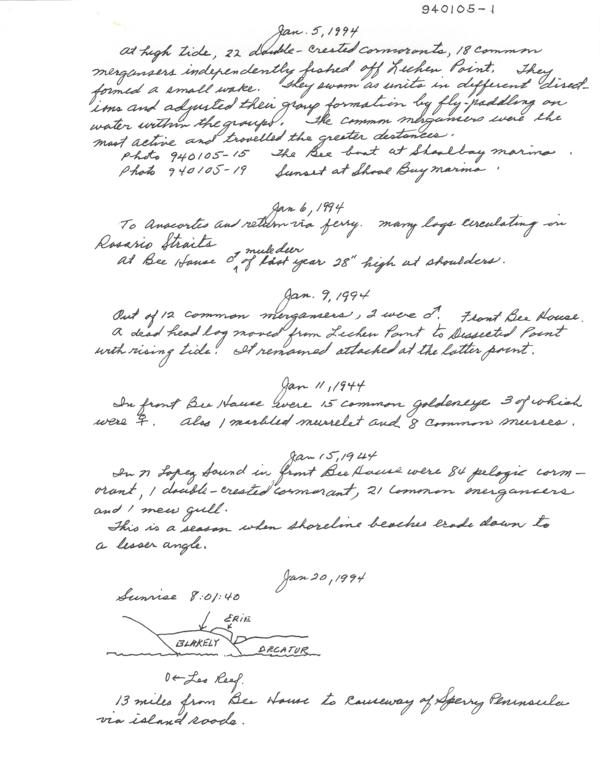 940105-1
Jan. 5, 1994
At high tide, 22 double-crested cormorants, 18 common
mergansers independently fished off Lichen Point. They
formed a small wake. They swam as units in different direct-
ions and adjusted their group formation by fly-paddling on
water within the groups. The common mergansers were the
most active and travelled the greater distances.
Photo 940105-15 The Bee boat at Shoalbay marina.
Photo 940105-19 Sunset at Shoal Bay marina.
Jan 6, 1994
To Anacortes and return via ferry. many logs circulating in
Rosario Straits
muledeer
At Bee House ♂ ^ of last year 28" high at shoulders.
Jan. 9, 1994
Out of 12 common mergansers, 2 were ♂. Front Bee House.
A dead head log moved from Lichen Point to Dissected Point
with rising tide. It remained attached at the latter point.
Jan 11, 1944
In front Bee House were 15 common goldeneye 3 of which
were ♀. Also 1 marbled murrelet and 8 common murres.
Jan 15, 1944
In N Lopez Sound in front Bee House were 84 pelagic corm-
orant, 1 double-crested cormorant, 21 common mergansers
and 1 mew gull.
This is a season when shoreline beaches erode down to
a lesser angle.
Jan 20, 1994
Sunrise 8:01:40
ERIE
BLAKELY
DECATUR
0← Leo Reef.
13 miles from Bee House to causeway of Sperry Peninsula
via island roads.